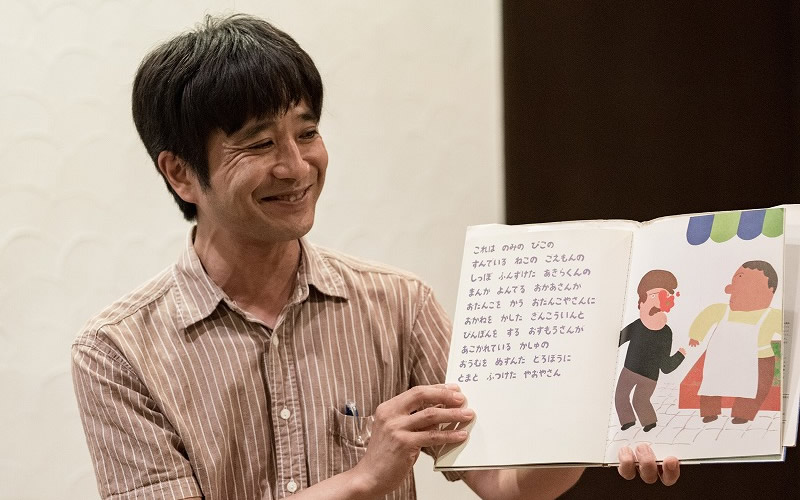 これは のみの ぴこの
すんでいる ねこの ごえもんの
しっぽ ふんずけた あきらくんの
まんが よんでる おかあさんが
おだんごを かう おだんごやさんに
おかねを かした ぎんこういんと
ぴんぽんを する おすもうさんが
あこがれている かしゅの
おうむを ぬすんだ どろぼうに
とまと ぶつけた やおやさん